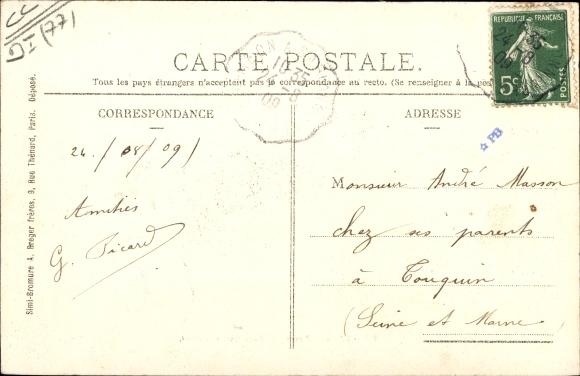 CC
DI (77)
RÉPUBLIQUE FRANÇAISE
5c
POSTES
CARTE POSTALE.
Tous les pays étrangers n'acceptent pas la correspondance au recto. (Se renseigner à la
CORRESPONDANCE
ADRESSE
☆ PB
24/08/09
Amitiés
G. Picard
Monsieur André Masson
chez ses parents
à Touquin
(Seine et Marne)
Simi-Bromure A. Breger frères, 9, Rue Thénard, Paris. Déposé.